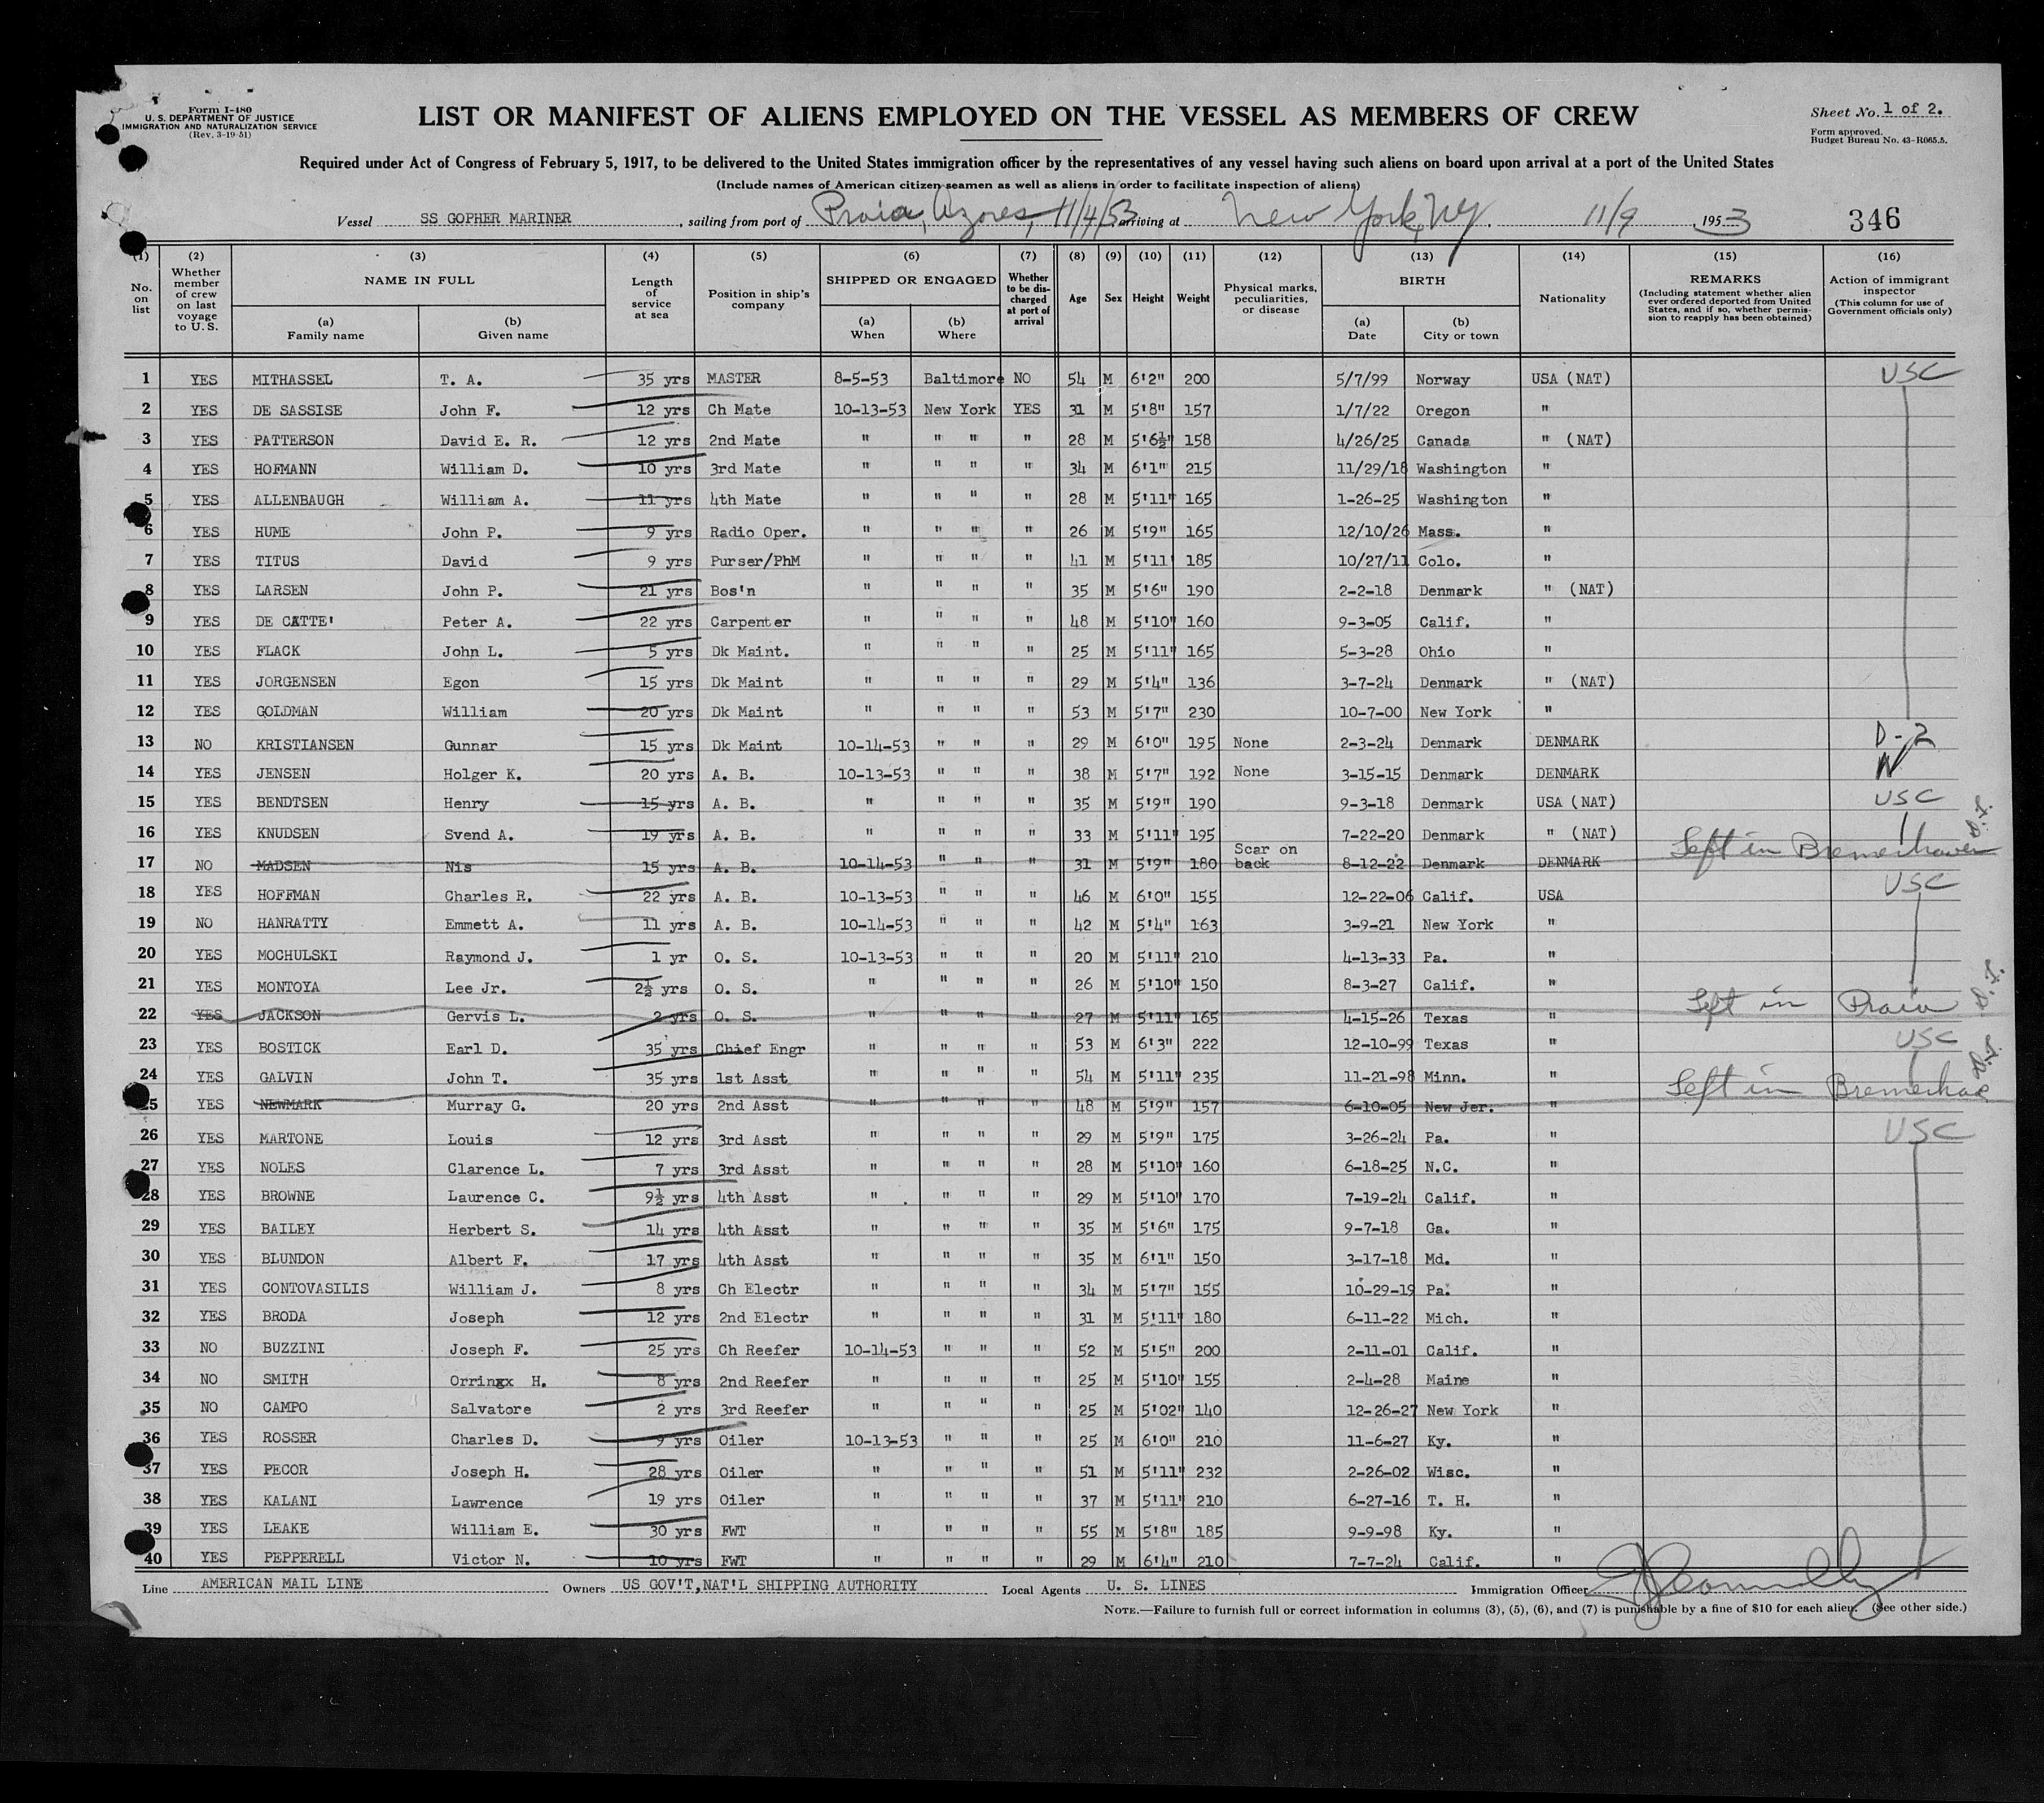 Form I-480
U. S. DEPARTMENT OF JUSTICE
IMMIGRATION AND NATURALIZATION SERVICE
(Rev. 3-19-51)
LIST OR MANIFEST OF ALIENS EMPLOYED ON THE VESSEL AS MEMBERS OF CREW
Sheet No. 1 of 2.
Form approved.
Budget Bureau No. 43-R065.5.
Required under Act of Congress of February 5, 1917, to be delivered to the United States immigration officer by the representatives of any vessel having such aliens on board upon arrival at a port of the United States
(Include names of American citizen seamen as well as aliens in order to facilitate inspection of aliens)
Vessel SS GOPHER MARINER, sailing from port of Praia, Azores, 11/4/53 arriving at New York, NY, 11/9, 1953 346
(1) No. on list
(2) Whether member of crew on last voyage to U. S.
(3) NAME IN FULL (a) Family name (b) Given name
(4) Length of service at sea
(5) Position in ship's company
(6) SHIPPED OR ENGAGED (a) When (b) Where
(7) Whether to be discharged at port of arrival
(8) Age
(9) Sex
(10) Height
(11) Weight
(12) Physical marks, peculiarities, or disease
(13) BIRTH (a) Date (b) City or town
(14) Nationality
(15) REMARKS (Including statement whether alien ever ordered deported from United States, and if so, whether permission to reapply has been obtained)
(16) Action of immigrant inspector (This column for use of Government officials only)
1 YES MITHASSEL T. A. 35 yrs MASTER 8-5-53 Baltimore NO 54 M 6'2" 200 5/7/99 Norway USA (NAT) USC
2 YES DE SASSISE John F. 12 yrs Ch Mate 10-13-53 New York YES 31 M 5'8" 157 1/7/22 Oregon "
3 YES PATTERSON David E. R. 12 yrs 2nd Mate " " " " 28 M 5'6½" 158 4/26/25 Canada " (NAT)
4 YES HOFMANN William D. 10 yrs 3rd Mate " " " " 34 M 6'1" 215 11/29/18 Washington "
5 YES ALLENBAUGH William A. 11 yrs 4th Mate " " " " 28 M 5'11" 165 1-26-25 Washington "
6 YES HUME John P. 9 yrs Radio Oper. " " " " 26 M 5'9" 165 12/10/26 Mass. "
7 YES TITUS David 9 yrs Purser/PhM " " " " 41 M 5'11 185 10/27/11 Colo. "
8 YES LARSEN John P. 21 yrs Bos'n " " " " 35 M 5'6" 190 2-2-18 Denmark " (NAT)
9 YES DE CATTE' Peter A. 22 yrs Carpenter " " " " 48 M 5'10" 160 9-3-05 Calif. "
10 YES FLACK John L. 5 yrs Dk Maint. " " " " 25 M 5'11" 165 5-3-28 Ohio "
11 YES JORGENSEN Egon 15 yrs Dk Maint " " " " 29 M 5'4" 136 3-7-24 Denmark " (NAT)
12 YES GOLDMAN William 20 yrs Dk Maint " " " " 53 M 5'7" 230 10-7-00 New York "
13 NO KRISTIANSEN Gunnar 15 yrs Dk Maint 10-14-53 " " " 29 M 6'0" 195 None 2-3-24 Denmark DENMARK D-2
14 YES JENSEN Holger K. 20 yrs A. B. 10-13-53 " " " 38 M 5'7" 192 None 3-15-15 Denmark DENMARK
15 YES BENDTSEN Henry 15 yrs A. B. " " " " 35 M 5'9" 190 9-3-18 Denmark USA (NAT) USC
16 YES KNUDSEN Svend A. 19 yrs A. B. " " " " 33 M 5'11" 195 7-22-20 Denmark " (NAT)
17 NO MADSEN Nis 15 yrs A. B. 10-14-53 " " " 31 M 5'9" 180 Scar on back 8-12-22 Denmark DENMARK Left in Bremerhaven
18 YES HOFFMAN Charles R. 22 yrs A. B. 10-13-53 " " " 46 M 6'0" 155 12-22-06 Calif. USA USC
19 NO HANRATTY Emmett A. 11 yrs A. B. 10-14-53 " " " 42 M 5'4" 163 3-9-21 New York "
20 YES MOCHULSKI Raymond J. 1 yr O. S. 10-13-53 " " " 20 M 5'11" 210 4-13-33 Pa. "
21 YES MONTOYA Lee Jr. 2½ yrs O. S. " " " " 26 M 5'10" 150 8-3-27 Calif. "
22 YES JACKSON Gervis L. 2 yrs O. S. " " " " 27 M 5'11" 165 4-15-26 Texas " Left in Praia
23 YES BOSTICK Earl D. 35 yrs Chief Engr " " " " 53 M 6'3" 222 12-10-99 Texas " USC
24 YES GALVIN John T. 35 yrs 1st Asst " " " " 54 M 5'11" 235 11-21-98 Minn. "
25 YES NEWMARK Murray G. 20 yrs 2nd Asst " " " " 48 M 5'9" 157 6-10-05 New Jer. " Left in
26 YES MARTONE Louis 12 yrs 3rd Asst " " " " 29 M 5'9" 175 3-26-24 Pa. " USC
27 YES NOLES Clarence L. 7 yrs 3rd Asst " " " " 28 M 5'10" 160 6-18-25 N.C. "
28 YES BROWNE Laurence C. 9½ yrs 4th Asst " " " " 29 M 5'10" 170 7-19-24 Calif. "
29 YES BAILEY Herbert S. 14 yrs 4th Asst " " " " 35 M 5'6" 175 9-7-18 Ga. "
30 YES BLUNDON Albert F. 17 yrs 4th Asst " " " " 35 M 6'1" 150 3-17-18 Md. "
31 YES CONTOVASILIS William J. 8 yrs Ch Electr " " " " 34 M 5'7" 155 10-29-19 Pa. "
32 YES BRODA Joseph 12 yrs 2nd Electr " " " " 31 M 5'11" 180 6-11-22 Mich. "
33 NO BUZZINI Joseph F. 25 yrs Ch Reefer 10-14-53 " " " 52 M 5'5" 200 2-11-01 Calif. "
34 NO SMITH Orringx H. 8 yrs 2nd Reefer " " " " 25 M 5'10" 155 2-4-28 Maine "
35 NO CAMPO Salvatore 2 yrs 3rd Reefer " " " " 25 M 5'02" 140 12-26-27 New York "
36 YES ROSSER Charles D. 9 yrs Oiler 10-13-53 " " " 25 M 6'0" 210 11-6-27 Ky. "
37 YES PECOR Joseph H. 28 yrs Oiler " " " " 51 M 5'11" 232 2-26-02 Wisc. "
38 YES KALANI Lawrence 19 yrs Oiler " " " " 37 M 5'11" 210 6-27-16 T. H. "
39 YES LEAKE William E. 30 yrs FWT " " " " 55 M 5'8" 185 9-9-98 Ky. "
40 YES PEPPERELL Victor N. 10 yrs FWT " " " " 29 M 6'4" 210 7-7-24 Calif. "
Line AMERICAN MAIL LINE Owners US GOV'T,NAT'L SHIPPING AUTHORITY Local Agents U. S. LINES Immigration Officer
NOTE.—Failure to furnish full or correct information in columns (3), (5), (6), and (7) is punishable by a fine of $10 for each alien. (See other side.)